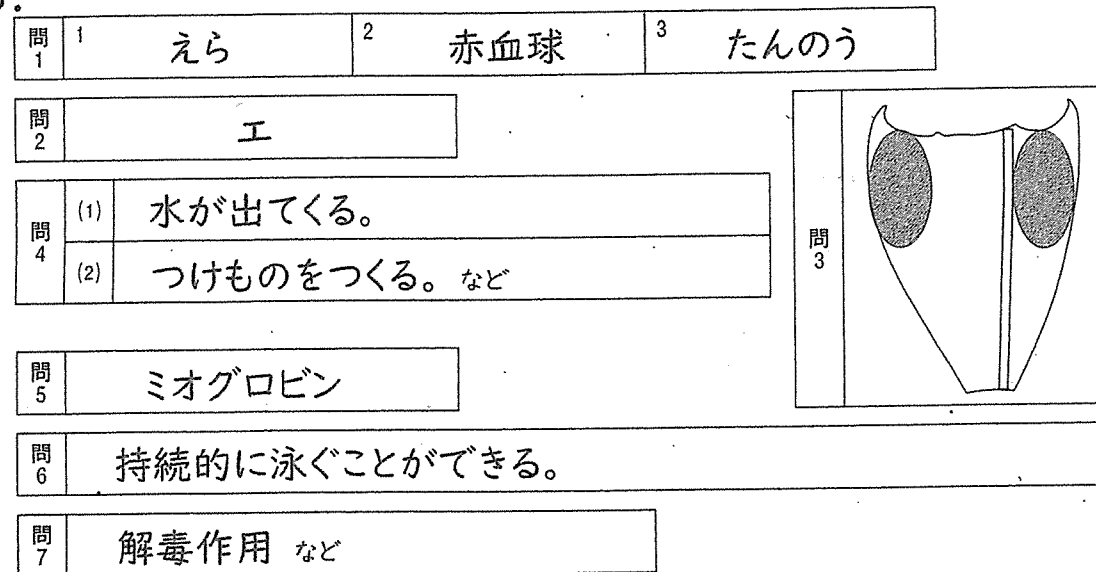 問1 1 えら 2 赤血球 3 たんのう
問2 エ
問3
問4 (1) 水が出てくる。
(2) つけものをつくる。など
問5 ミオグロビン
問6 持続的に泳ぐことができる。
問7 解毒作用 など